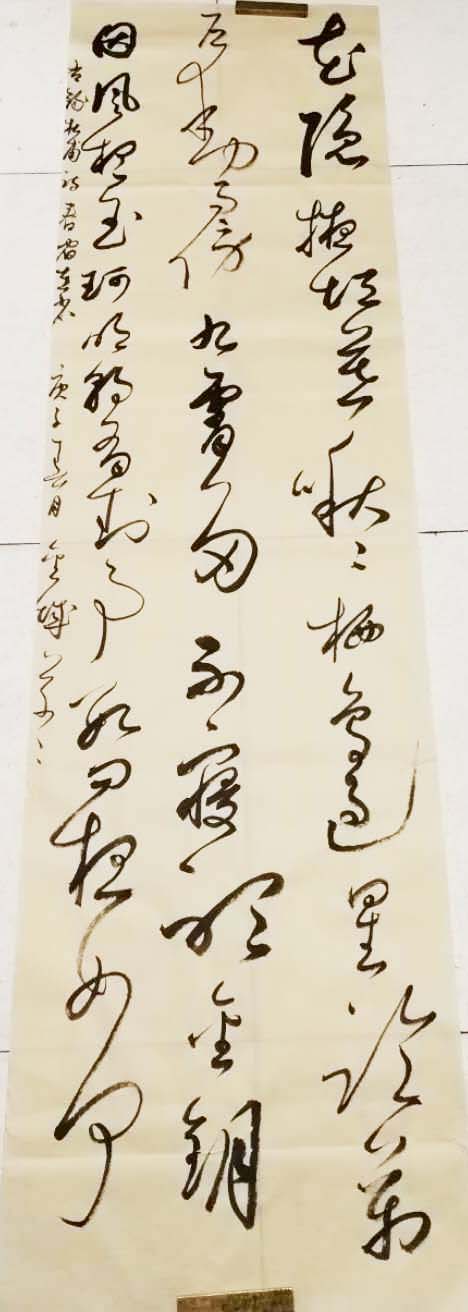 花隐掖垣暮啾々栖鸟过星临万
户动月傍九霄多不寝听金钥
因风想玉珂明朝有封事数问夜如何
古 杜甫诗春宿左省 庚子 月 金城